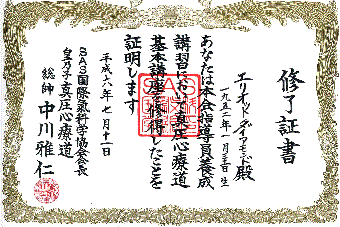 修了証書
エリオット・ダイアモンド殿
一九五二年一月三日生
あなたは本会指導員養成
講習において真圧心療道
基本講座を修得したことを
証明します
平成六年七月十一日
SAS国際氣科学協会会長
皇乃子真圧心療道
総師 中川雅仁
SAS